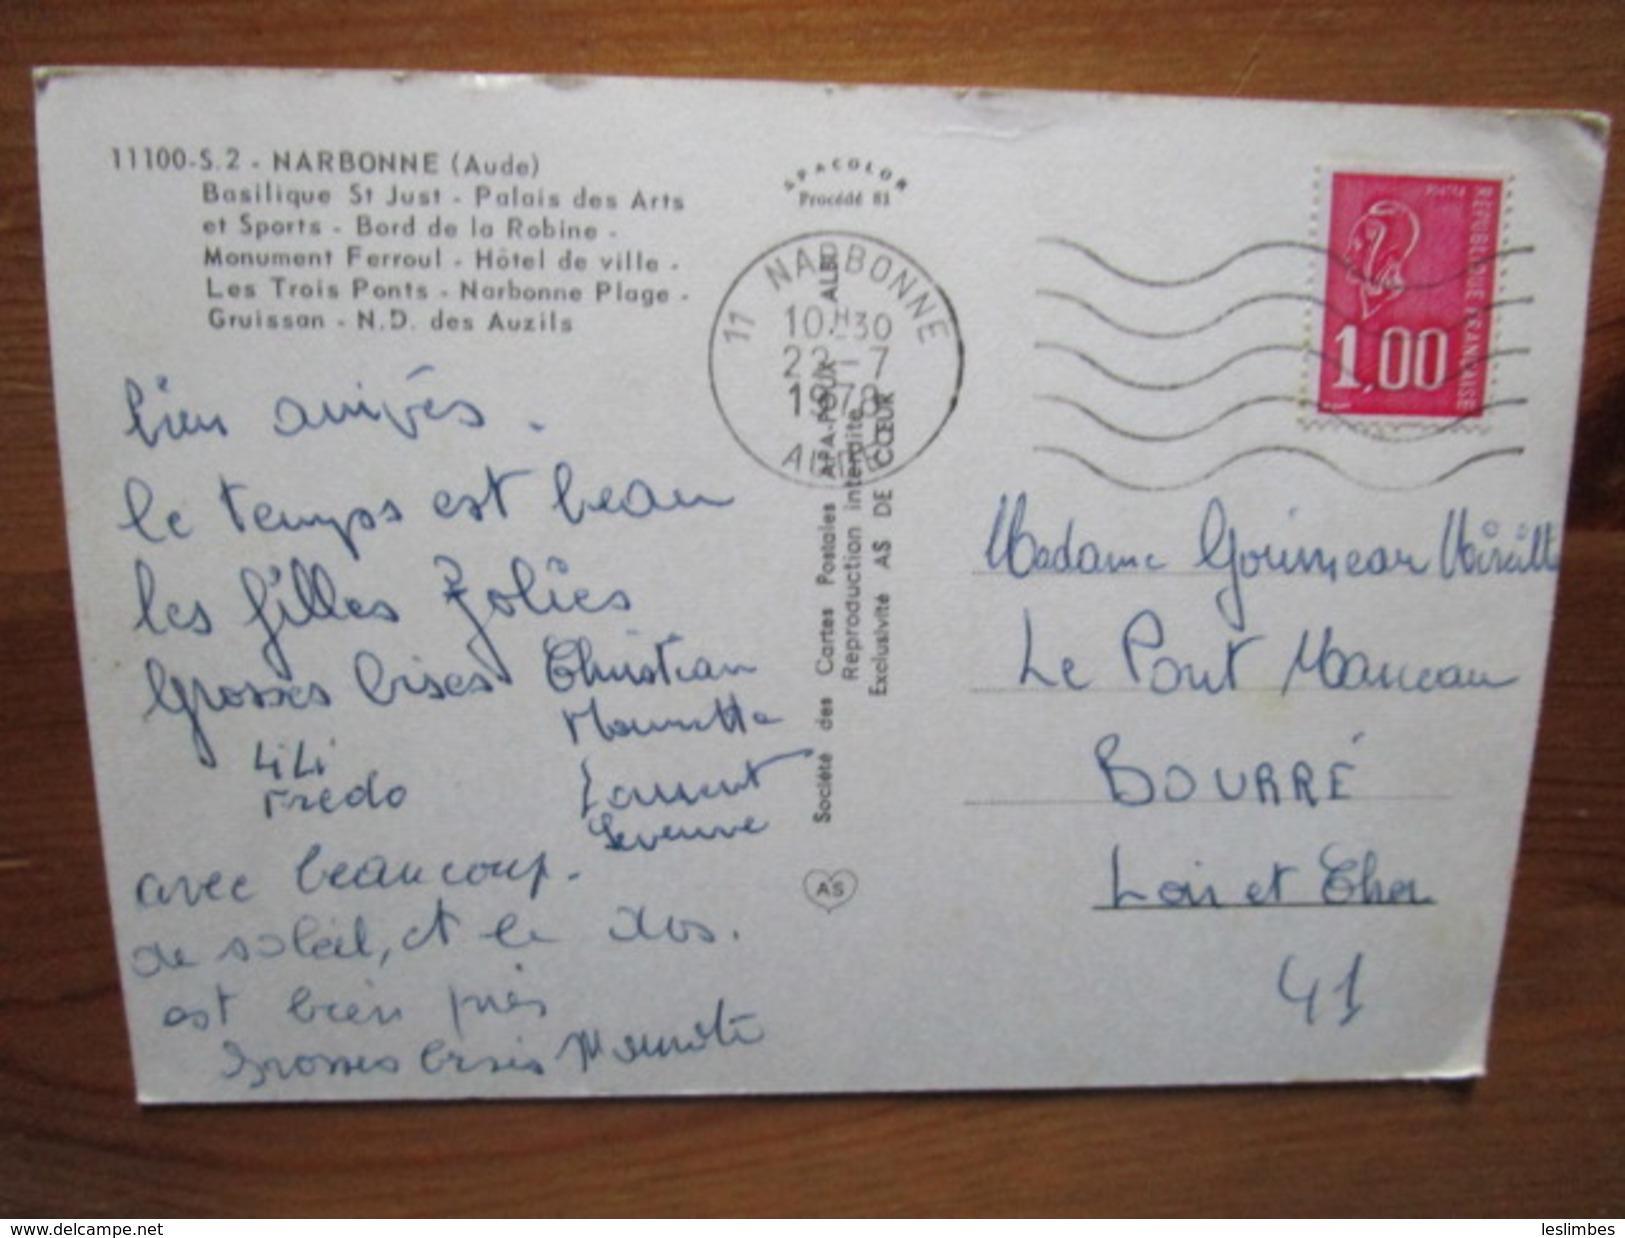 11100-S.2 - NARBONNE (Aude)
Basilique St Just - Palais des Arts
et Sports - Bord de la Robine -
Monument Ferroul - Hôtel de ville -
Les Trois Ponts - Narbonne Plage -
Gruissan - N.D. des Auzils
APACOLOR
Procédé 81
11 NARBONNE
10H30
22-7
1978
AUDE
REPUBLIQUE FRANÇAISE
1,00
Société des Cartes Postales APA-POUX - ALBI
Reproduction interdite
Exclusivité AS DE CŒUR
AS
bien arrivés.
le temps est beau
les filles jolies
Grosses bises Christian
Laurent
Lili
Fredo
avec beaucoup.
de soleil, et le dos.
est bien près
Grosses bises
Madame Mireille
Le Pont
BOURRÉ
Loir et Cher
41
delcampe.net
leslimbes